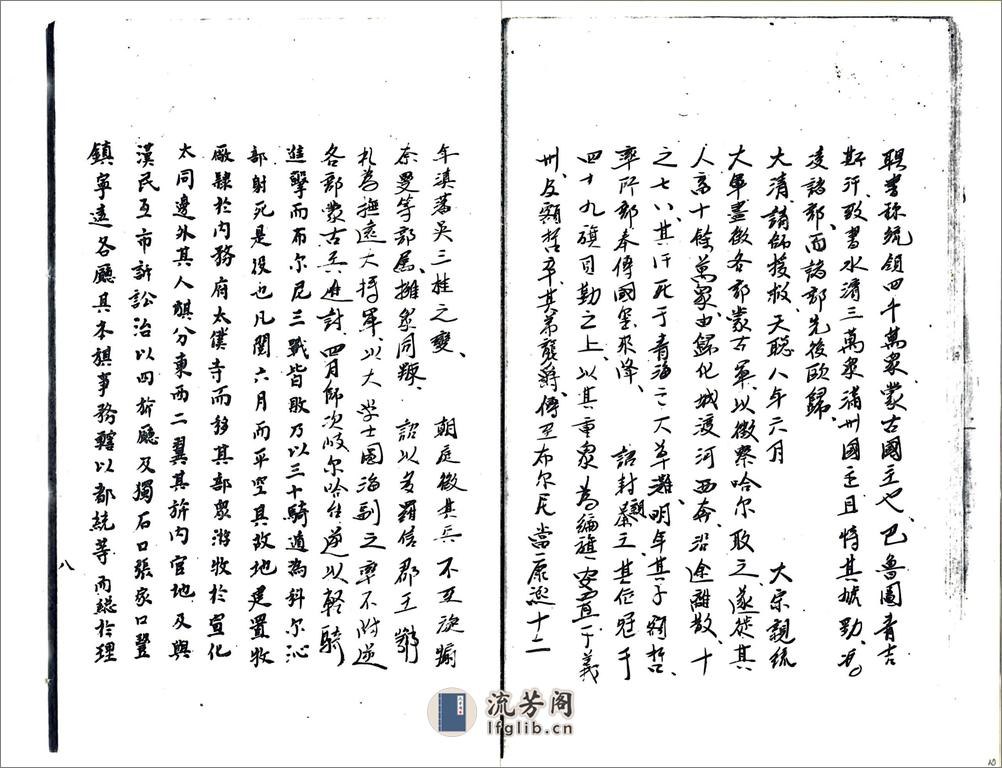 聘書称統領四十萬衆蒙古國主也、巴魯圖青吉
斯汗、致書水濱三萬衆滿州國主且恃其虓勁、馮
凌諸部、而諸部先後歐歸、
大清、請師援救、天聡八年六月　太宗親統
大軍盡徵各部蒙古軍、以徵察哈尔敗之、遂徙其
人畜十餘萬衆、由歸化城渡河西奔、沿途離散、十
之七八、其汗死于青海之大草灘、明年、其子額哲
率所部奉傳國璽來降、　詔封親王、其位冠于
四十九旗貝勒之上、以其重衆為編旗、安置于義
州、及額哲卒、其弟襲爵、傳至布尔尼當康熙十二
年滇藩吳三桂之變、　朝庭徵其兵不至旋煽
奈曼等部属、擁衆同叛、　詔以多羅信郡王鄂
扎為撫遠大将軍、以大学士圖海副之率不附逆
各部蒙古兵進討、四月師次岐尔哈台遂以軽騎
進擊而布尔尼三戰皆敗乃以三十騎遁為科尔沁
部射死是役也凡閲六月而平空其故地建置牧
廠隸於内務府太僕寺而移其部衆游牧於宣化
大同邊外其人旗分東西二翼其旂内官地及與
漢民互市訴訟治以四旂廳及獨石口張家口豐
鎮寧遠各廳其本旗事務轄以都統等而総於理
八
流芳阁
lfglib.cn
10